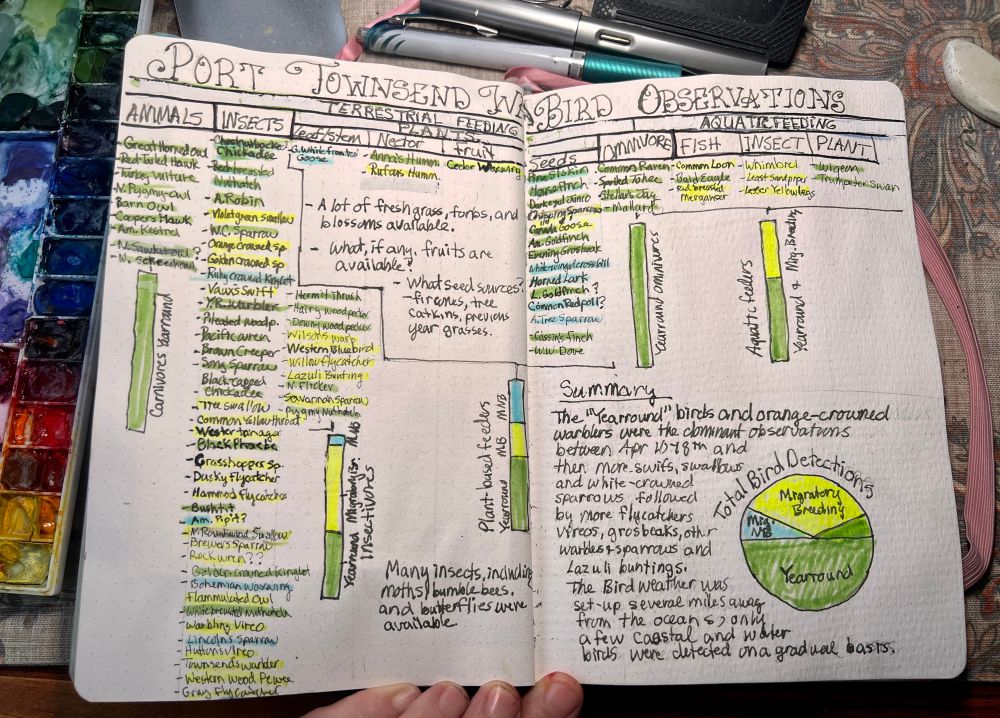 PORT TOWNSEND WA BIRD OBSERVATIONS
TERRESTRIAL FEEDING
AQUATIC FEEDING
ANIMALS
INSECTS
PLANTS
Leaf/stem
Nector
fruit
Seeds
OMNIVORE
FISH
INSECT
PLANT
Great Horned Owl
Red Tailed Hawk
Turkey Vulture
N. Pygmy-Owl
Barn Owl
Coopers Hawk
- Am. Kestrel
- W. Screechowl
Chickadee
Red-breasted
Nuthatch
- A. Robin
- Violet green swallow
- W.C. Sparrow
- Orange crowned sp.
- Golden crowned sp.
- Ruby crowned Kinglet
- Vaux Swift
- Y.R. Warbler
- Pileated woodp.
- Pacific wren
- Brown Creeper
- Song Sparrow
- Black-capped
Chickadee
- Tree swallow
- Common Yellowthroat
- Western tanager
- Black Phoebe
- Grasshopper sp.
- Dusky flycatcher
- Hammod flycatcher
- Bushtit
- Am. Pipit?
- Brewers Sparrow
- Rock wren??
- Golden crowned Kinglet
- Bohemian waxwing
- Flammulated Owl
- White breasted Nuthatch
- Warbling Vireo
- Lincolns Sparrow
- Huttons vireo
- Townsends warbler
- Western Wood Pewee
- Gray Flycatcher
- Hermit Thrush
- Hairy woodpecker
- Downy woodpecker
- Wilsons warb
- Western Bluebird
- Willow flycatcher
- Lazuli Bunting
- N. Flicker
- Savannah Sparrow
- pygmy Nuthatch
G. White fronted
Goose
- Anna's Humm.
- Rufous Humm.
Cedar Waxwing
- A lot of fresh grass, forbs, and
blossoms available.
- What, if any, fruits are
available?
- What seed sources?
- firecones, tree
catkins, previous
year grasses.
Pine Siskin
House finch
Dark eyed Junco
Chipping Sparrow
Canada Goose
Am. Goldfinch
Evening Grosbeak
White winged crossbill
Horned Lark
L. Goldfinch?
Common Redpoll?
A. Tree Sparrow
- Cassins finch
- W.W. Dove
- Common Raven
- Spotted Towhee
- Stellars Jay
- Mallard
- Common Loon
- Bald Eagle
- Red-breasted
merganser
- Whimbrel
- Least sandpiper
- Lesser Yellowlegs
- Wigeon
- Trumpeter Swan
Carnivores Yearround
Yearround Migratory
MNB
Insectivores
Plant-based feeders
Yearround
MB
MNB
Yearround omnivores
Aquatic feeders
Yearround & Mig. Breeding
Many insects, including
moths, bumble bees,
and butterflies were
available
Summary
The "Yearround" birds and orange-crowned
warblers were the dominant observations
between Apr 15-18th and
then more swifs, swallows
and white-crowned
sparrows followed
by more flycatchers
vireos, grosbeaks, other
warblers & sparrows and
Lazuli buntings.
The Bird weather was
set-up several miles away
from the ocean s; only
a few Coastal and water
birds were detected on a gradual basis.
Total Bird Detections
Migratory
Breeding
Mig.
NB
Yearround